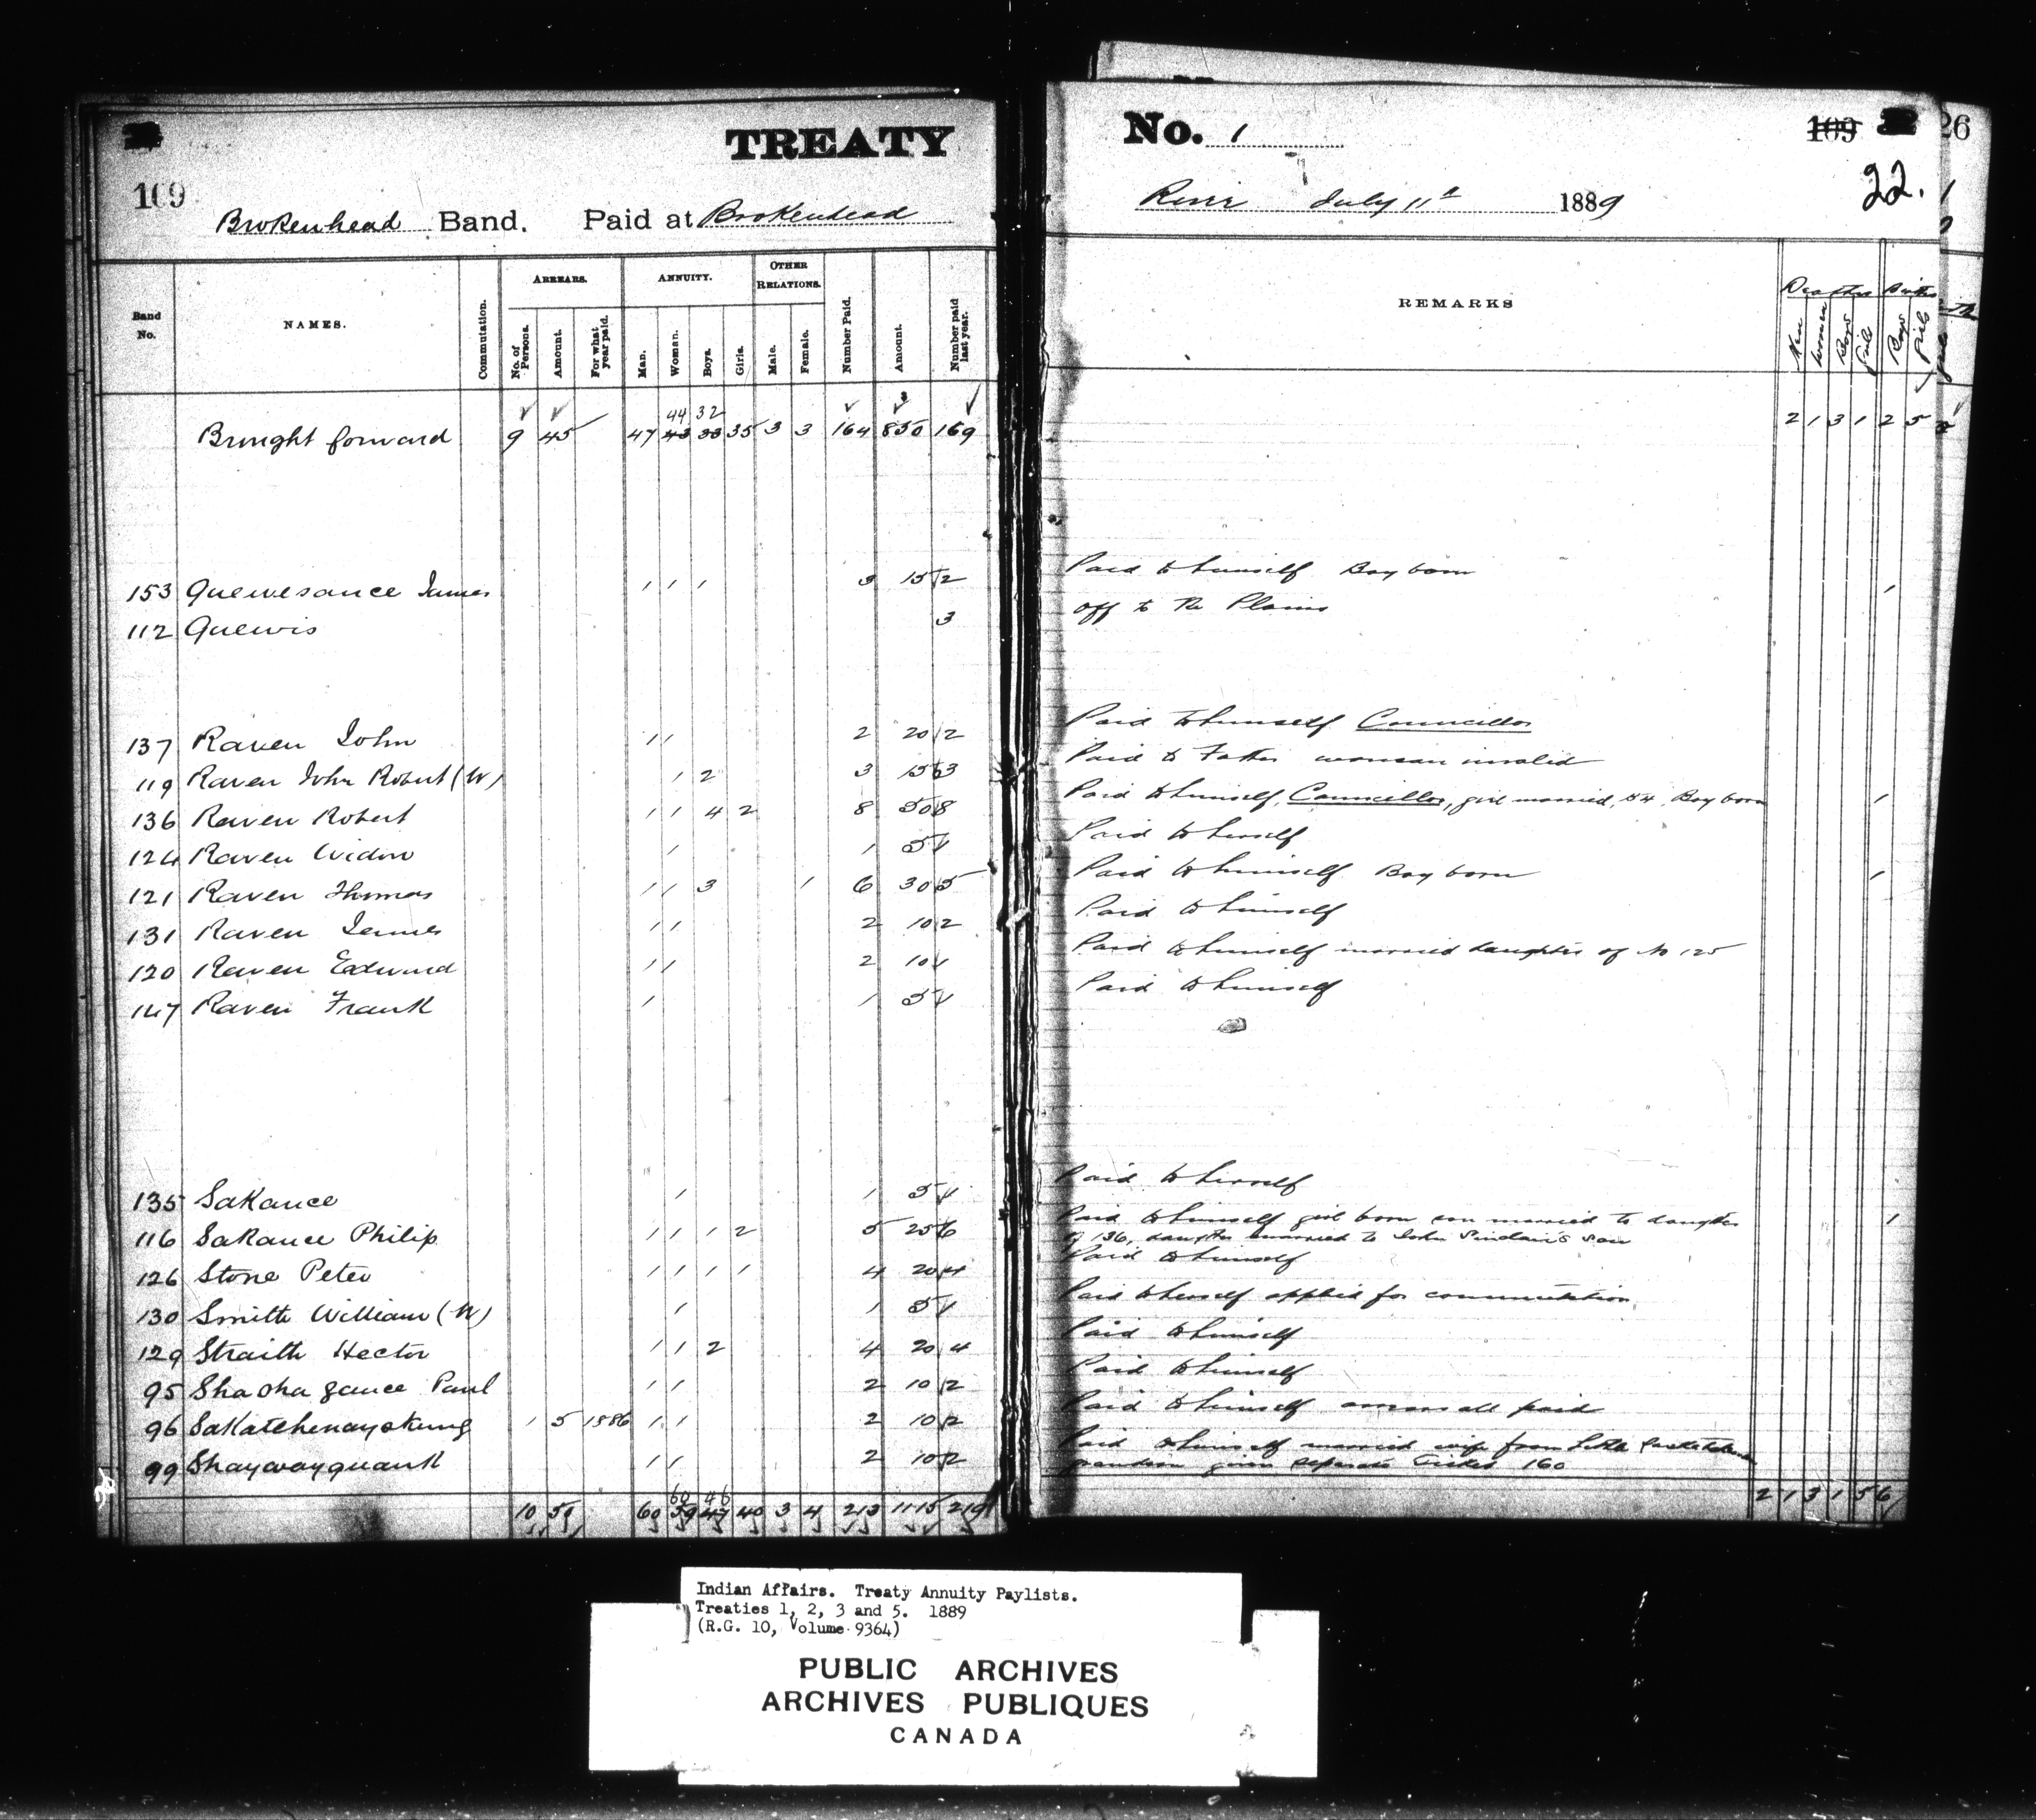 TREATY No. 1
109 109 26
22.
Brokenhead Band. Paid at Brokenhead River July 11th 1889
Band No. NAMES. Commutation. ARREARS. No. of Persons. Amount. For what year paid. ANNUITY. Man. Woman. Boys. Girls. OTHER RELATIONS. Male. Female. Number Paid. Amount. Number paid last year. REMARKS Deaths Men Women Boys Girls Births Boys Girls
44 32
Brought forward 9 45 47 43 33 35 3 3 164 850 169 2 1 3 1 2 5
153 Quewesance James 1 1 1 3 15 2 Paid to himself Boy born 1
112 Quewis 3 off to the Plains
137 Raven John 1 1 2 20 2 Paid to himself Councillor
119 Raven John Robert (W) 1 2 3 15 3 Paid to Father woman invalid
136 Raven Robert 1 1 4 2 8 50 8 Paid to himself, Councillor, girl married, Boy born 1
124 Raven Widow 1 1 5 1 Paid to herself
121 Raven Thomas 1 1 3 1 6 30 5 Paid to himself Boy born 1
131 Raven James 1 1 2 10 2 Paid to himself
120 Raven Edward 1 1 2 10 1 Paid to himself married daughter of No 125
147 Raven Frank 1 1 5 1 Paid to himself
135 Sakance 1 1 5 1 Paid to herself
116 Sakance Philip 1 1 1 2 5 25 6 Paid to himself girl born son married to daughter 1
of 136, daughter married to John Sinclair's son
126 Stone Peter 1 1 1 1 4 20 4 Paid to himself
130 Smith William (W) 1 1 5 1 Paid to herself applied for commutation
129 Straith Hector 1 1 2 4 20 4 Paid to himself
95 Shaoha gance Paul 1 1 2 10 2 Paid to himself
96 Sakatchewayskung 1 5 1886 1 1 2 10 2 Paid to himself arrears all paid
99 Shaywayquank 1 1 2 10 2 Paid to himself married wife from Little
grandson given separate ticket 160
60 46
10 50 60 59 47 40 3 4 213 1115 219 2 1 3 1 5 6
Indian Affairs. Treaty Annuity Paylists.
Treaties 1, 2, 3 and 5. 1889
(R.G. 10, Volume 9364)
PUBLIC ARCHIVES
ARCHIVES PUBLIQUES
CANADA